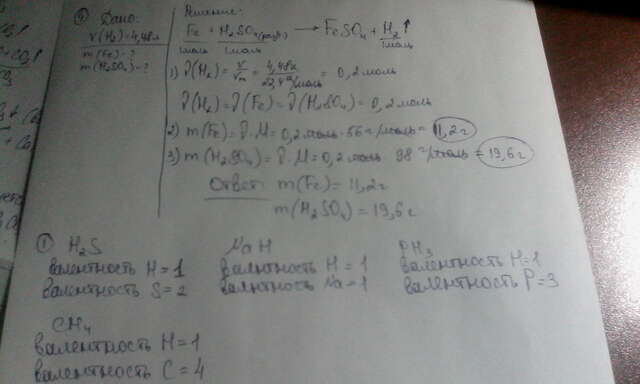 ④ Дано:
V(H₂)=4,48л
m(Fe)-?
m(H₂SO₄)-?
Решение:
Fe + H₂SO₄(разб) → FeSO₄ + H₂↑
1моль 1моль 1моль
1) ν(H₂) = V/Vm = 4,48л/22,4л/моль = 0,2 моль
ν(H₂) = ν(Fe) = ν(H₂SO₄) = 0,2 моль
2) m(Fe) = ν·M = 0,2 моль · 56 г/моль = 11,2 г
3) m(H₂SO₄) = ν·M = 0,2 моль · 98 г/моль = 19,6 г
Ответ: m(Fe) = 11,2г
m(H₂SO₄) = 19,6г
① H₂S
валентность H = 1
валентность S = 2
NaH
валентность H = 1
валентность Na = 1
PH₃
валентность H = 1
валентность P = 3
CH₄
валентность H = 1
валентность C = 4